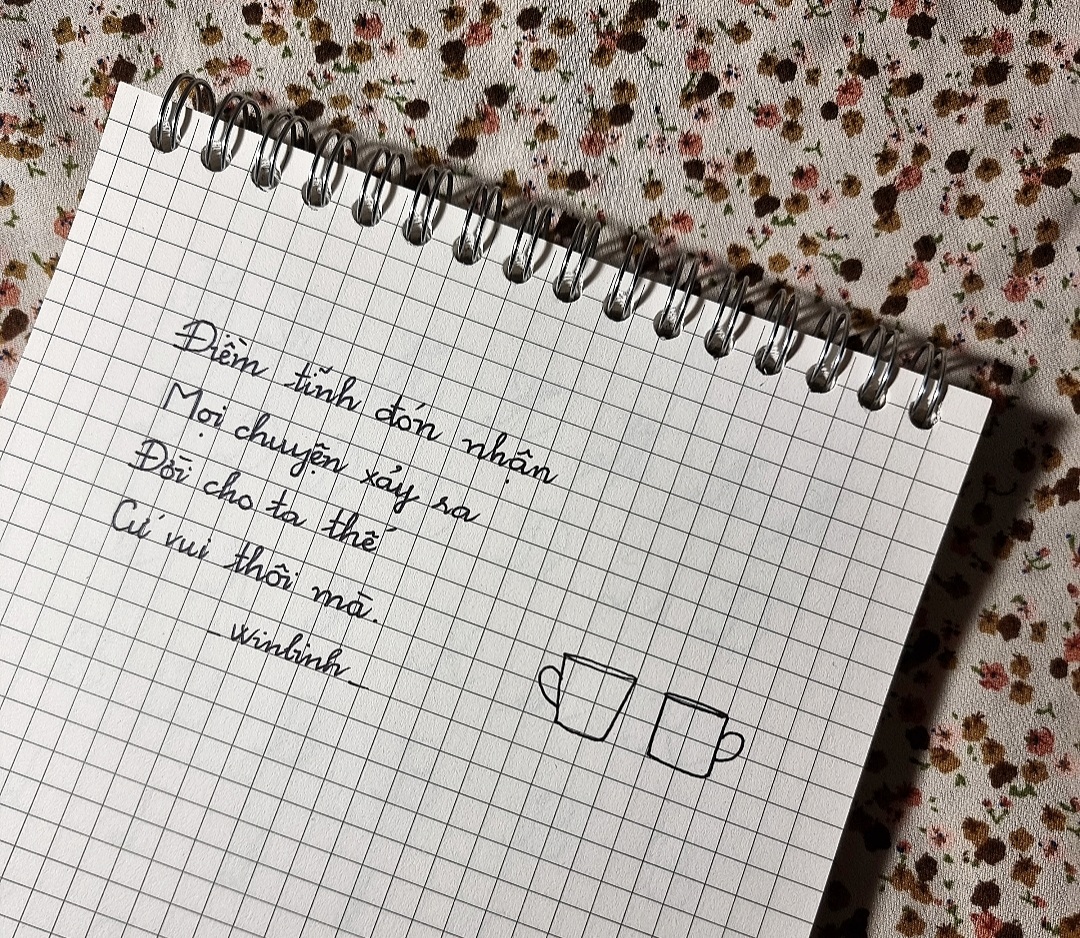 Điềm tĩnh đón nhận
Mọi chuyện xảy ra
Đời cho ta thế
Cứ vui thôi mà.
_ Winbinh _